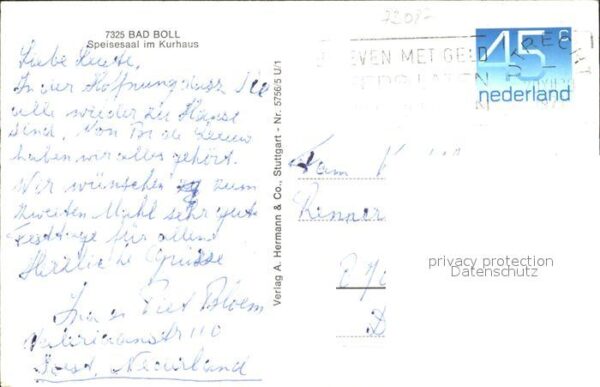 7325 BAD BOLL
Speisesaal im Kurhaus
Liebe Leute,
In der Hoffnung dasz Sie
alle wieder zu Hause
sind. Von Br. de Leeuw
haben wir alles gehört.
Wir wünschen zum
zweiten Mahl sehr gute
Festtage für allen
Herzliche Grüsse
Piet Bloem
110
Soest, Nederland
Verlag A. Hermann & Co., Stuttgart - Nr. 5756/5 U/1
MET GELD
UTRECHT
45 c
nederland
Fam
Rinner
privacy protection
Datenschutz